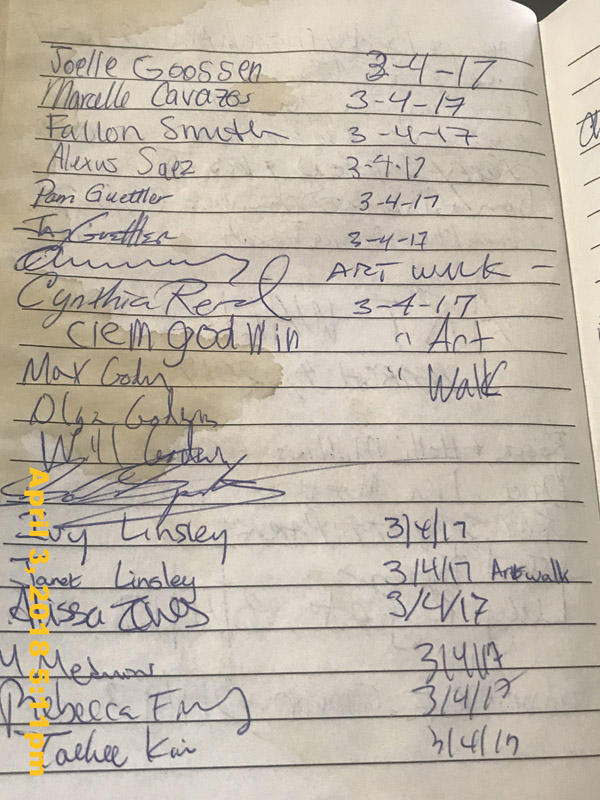 Joelle Goossen 3-4-17
Marcelle Cavazos 3-4-17
Fallon Smith 3-4-17
Alexus Saez 3-4-17
Pam Guettler 3-4-17
Jay Guettler 3-4-17
ART WALK -
Cynthia Reed 3-4-17
Clem godwin " Art
Max " Walk
Olga
Will
Linsley 3/4/17
Janet Linsley 3/4/17 Artwalk
Alissa Jones 3/4/17
M 3/4/17
Rebecca 3/4/17
3/4/17
April 3, 2018 5:11pm